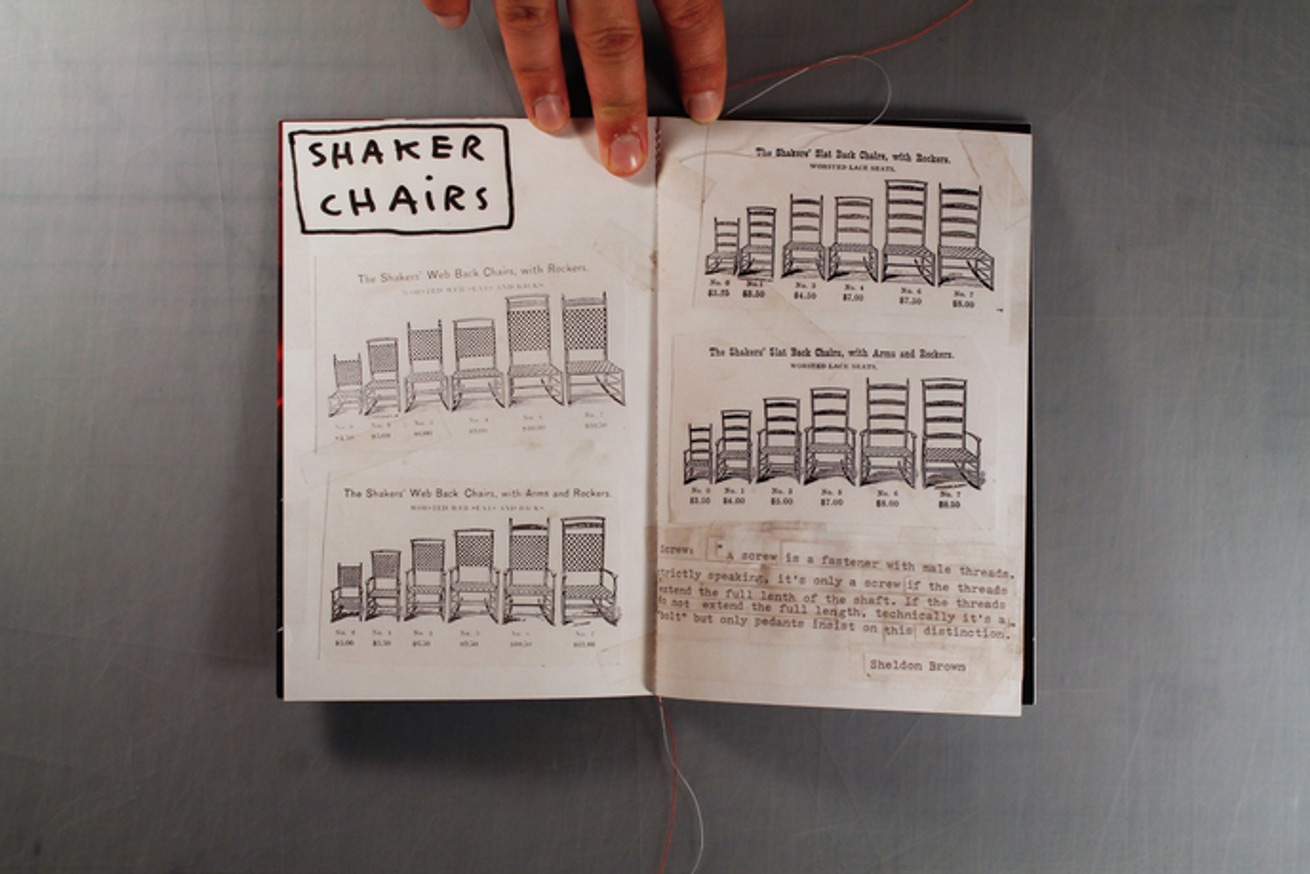 SHAKER
CHAiRS
The Shakers' Web Back Chairs, with Rockers.
WORSTED WEB SEATS AND BACKS.
The Shakers' Web Back Chairs, with Arms and Rockers.
WORSTED WEB SEATS AND BACKS.
The Shakers' Slat Back Chairs, with Rockers.
WORSTED LACE SEATS.
No. 0 No. 1 No. 3 No. 4 No. 6 No. 7
$3.25 $3.50 $4.50 $7.00 $7.50 $8.00
The Shakers' Slat Back Chairs, with Arms and Rockers.
WORSTED LACE SEATS.
No. 0 No. 1 No. 3 No. 5 No. 6 No. 7
$3.50 $4.00 $5.00 $7.00 $8.00 $8.50
Screw: "A screw is a fastener with male threads.
strictly speaking, it's only a screw if the threads
extend the full lenth of the shaft. If the threads
do not extend the full length, technically it's a
"bolt" but only pedants insist on this distinction.
Sheldon Brown